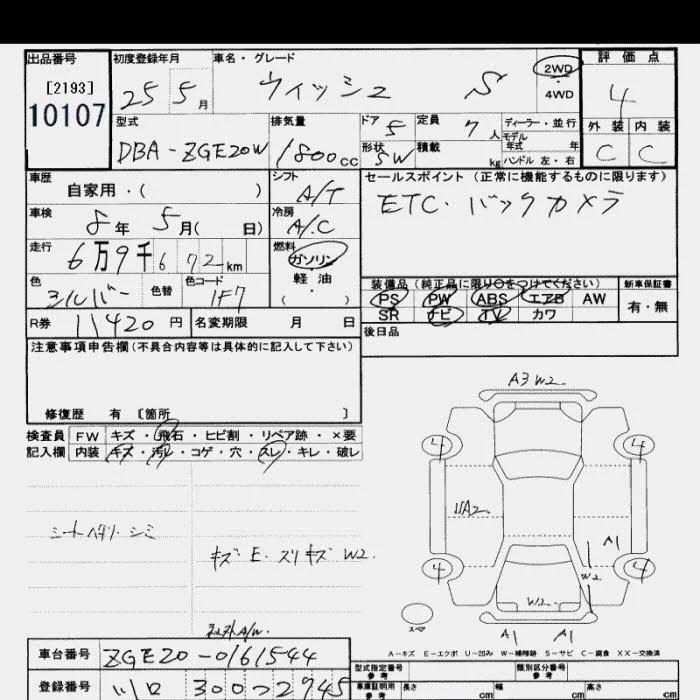 出品番号 初度登録年月 車名・グレード 評価点
[2193]
10107
25 5月 ウィッシュ S 2WD
4WD
4
外装 内装
C C
型式 排気量 ドア 5 定員 7人 ディーラー・並行
モデル年式 年
DBA-ZGE20W 1800cc 形状 SW 積載 kg ハンドル 左・右
車歴 シフト セールスポイント (正常に機能するものに限ります)
自家用・( ) A/T ETC・バックカメラ
車検 8年 5月( 日) 冷房 A/C
走行 6万9千672km 燃料 ガソリン
軽油
・( )
色 シルバー 色替 色コード 1F7
装備品 (純正品に限り○をつけてください) 新車保証書
PS PW ABS エアB AW 有・無
SR ナビ TV カワ
R券 11420円 名変期限 月 日 後日品
注意事項申告欄(不具合内容等は具体的に記入して下さい)
修復歴 有 〔箇所 〕
検査員 FW キズ・飛石・ヒビ割・リペア跡・×要
記入欄 内装 キズ・汚れ・コゲ・穴・スレ・キレ・破レ
A3 W2
4 4
UA2
A1
W2
4 4
W2
A1 A1
スペア
シートヘタリ シミ
キズ・E・スリキズ W2.
社外A/W.
A-キズ E-エクボ U-凹み W-補修跡 S-サビ C-腐食 XX-交換済
車台番号 ZGE20-0161544
型式指定番号 参考 類別区分番号 参考
登録番号 川口 300 2945
車庫証明用 参考 長さ cm 幅 cm 高さ cm